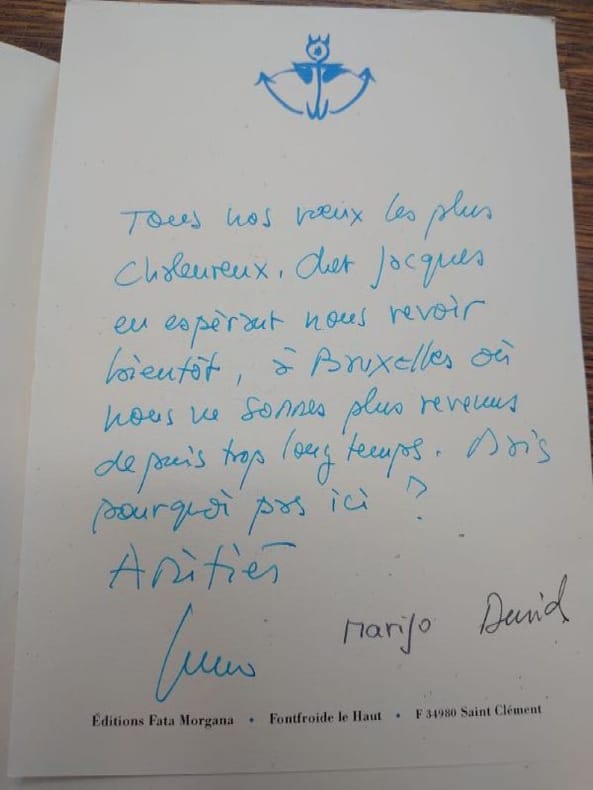 Tous nos vœux les plus
chaleureux, cher Jacques
en espérant nous revoir
bientôt, à Bruxelles où
nous ne sommes plus revenus
depuis trop longtemps. Mais
pourquoi pas ici ?
Amitiés
Marijo David
Éditions Fata Morgana • Fontfroide le Haut • F 34980 Saint Clément